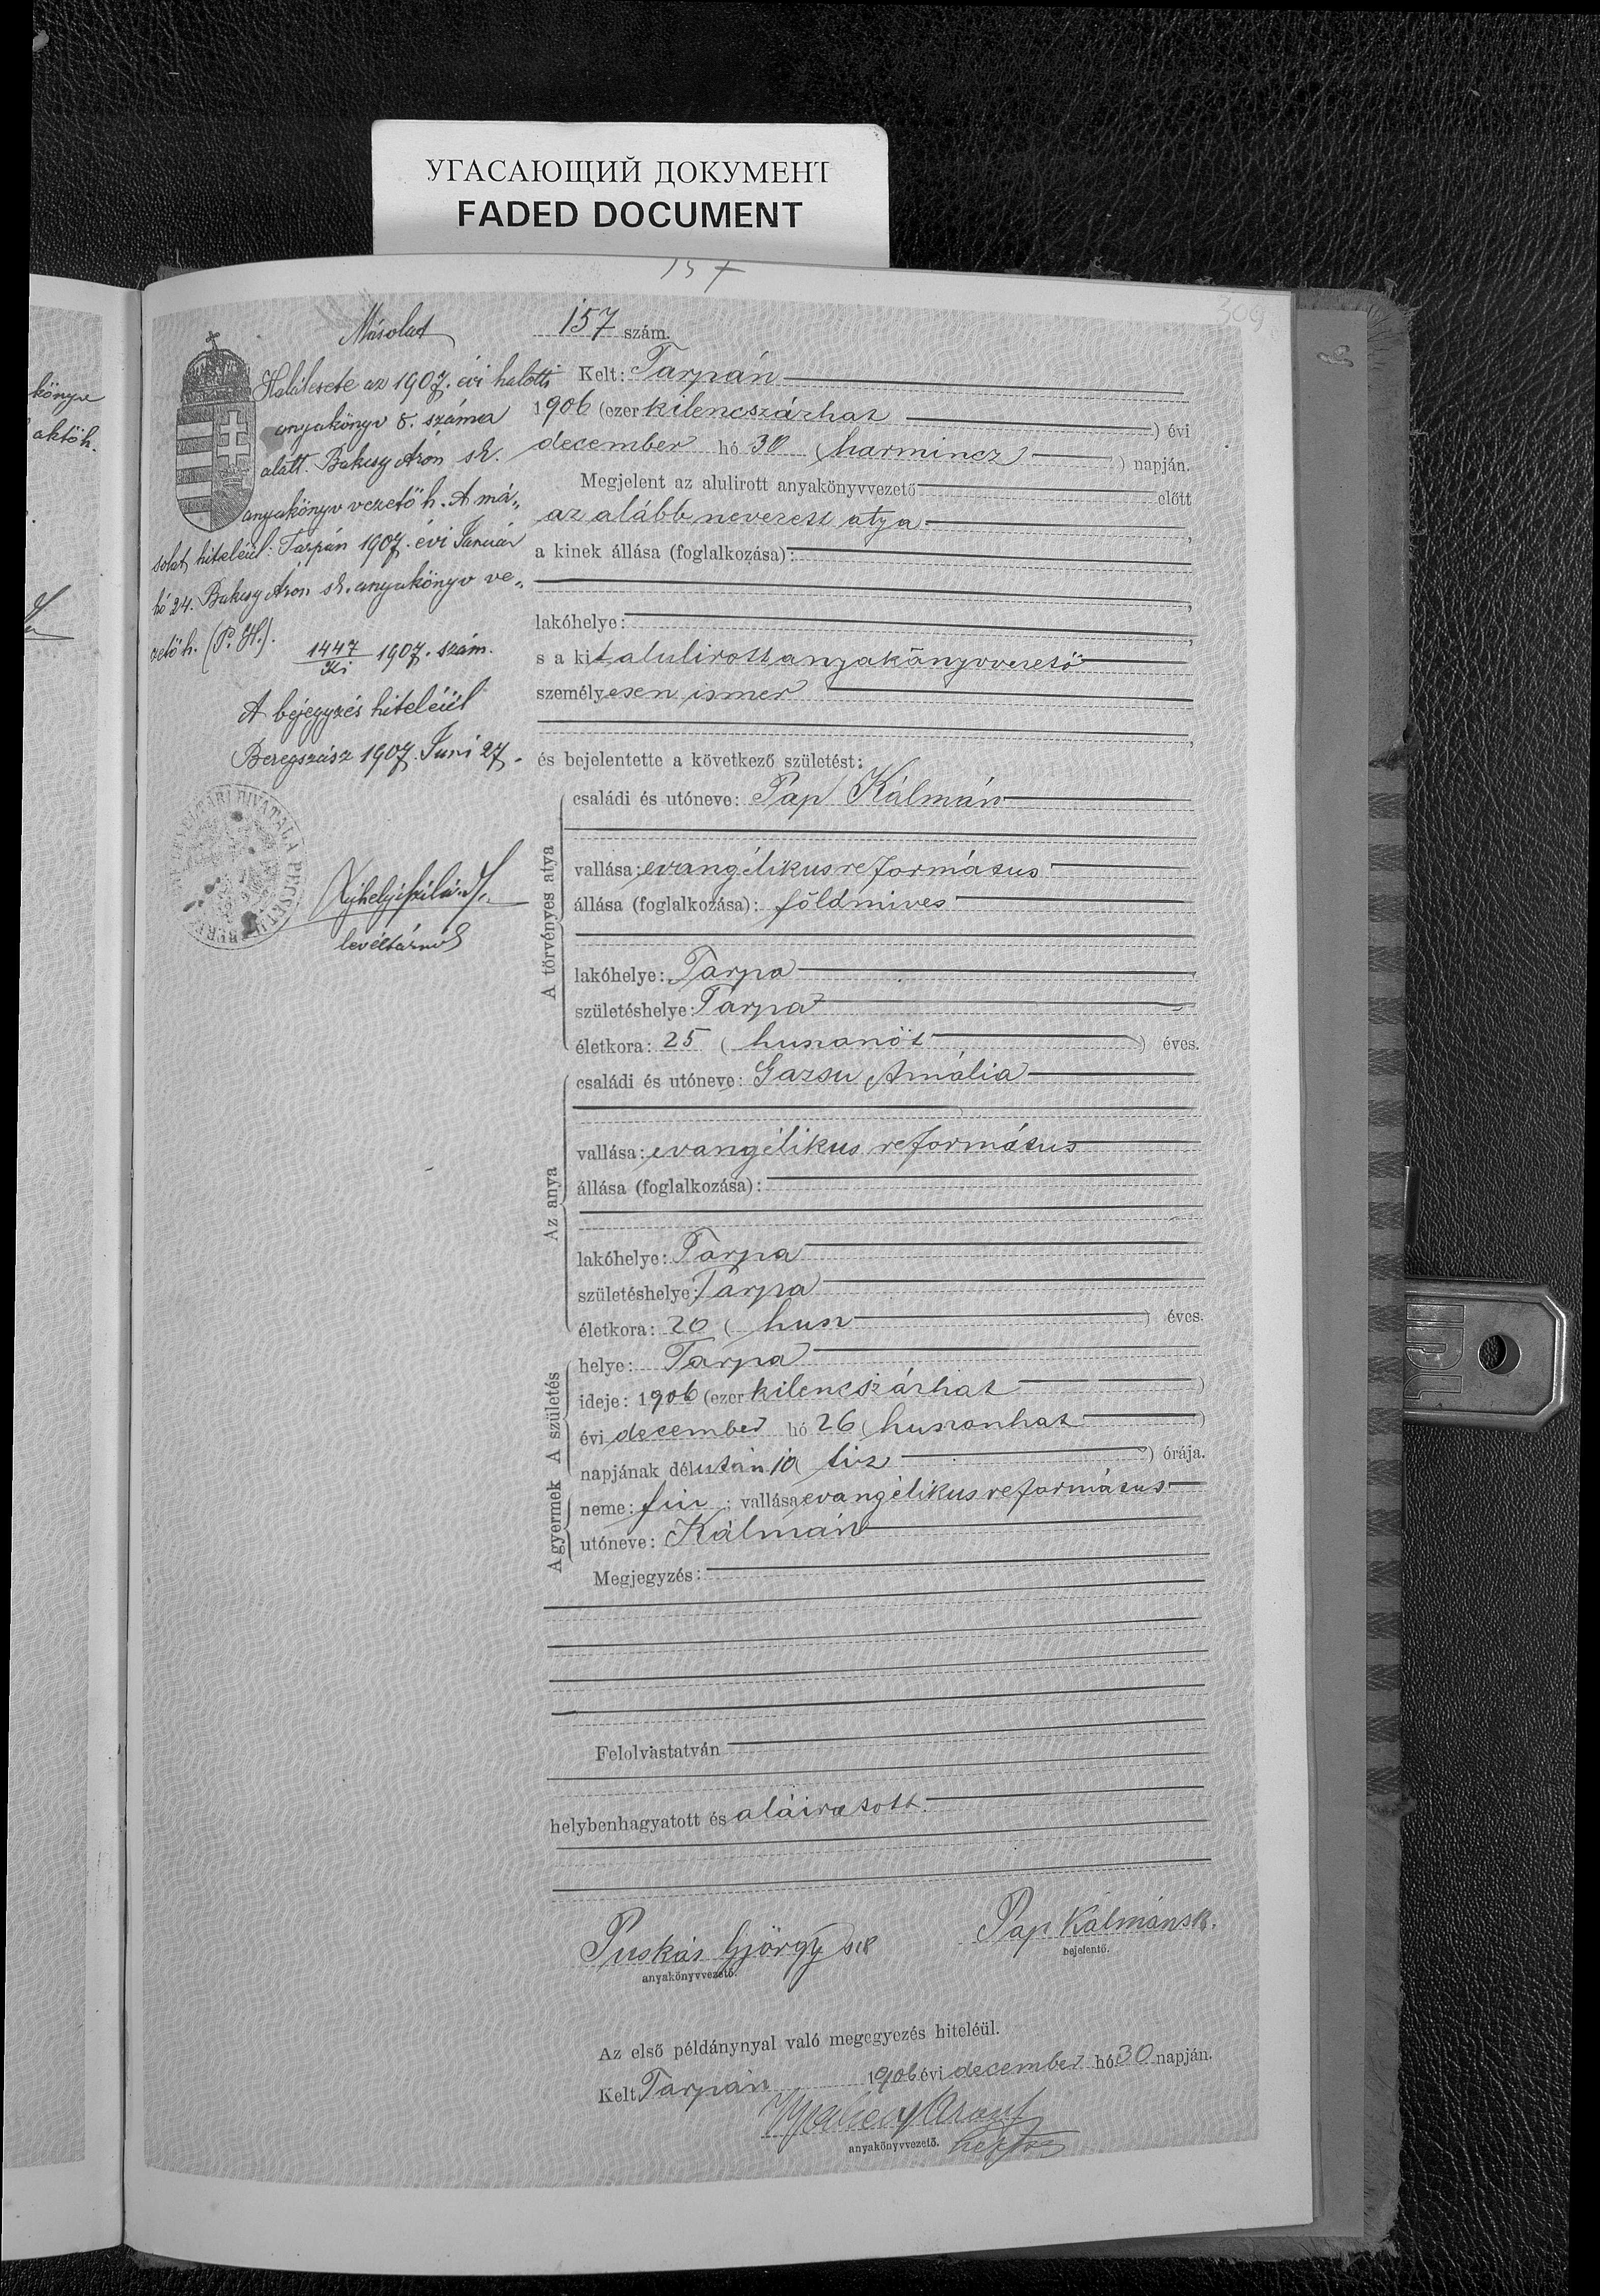 УГАСАЮЩИЙ ДОКУМЕНТ
FADED DOCUMENT
157
309
könyv
aktöh.
Másolat
Halálesete az 1907. évi halotti
anyakönyv 8. száma
alatt. Bakcsy Áron sk.
anyakönyv vezető h. A má-
solat hiteléül: Tarpán 1907. évi Január
hó 24. Bakcsy Áron sk. anyakönyv ve-
zető h. (P. H.).
1447
Ki 1907. szám.
A bejegyzés hiteléül
Beregszász 1907. Juni 27.
levéltárnok
157 szám.
Kelt: Tarpán
1906 (ezer kilencszázhat ) évi
december hó 30 (harmincz ) napján.
Megjelent az alulirott anyakönyvvezető előtt
az alább nevezett atya,
a kinek állása (foglalkozása):
,
lakóhelye: ,
s a kit alulirott anyakönyvvezető
személyesen ismer
,
és bejelentette a következő születést:
A törvényes atya
családi és utóneve: Pap Kálmán
vallása: evangélikus református
állása (foglalkozása): földmives
lakóhelye: Tarpa
születéshelye: Tarpa
életkora: 25 (huszonöt ) éves.
Az anya
családi és utóneve: Gazsu Amália
vallása: evangélikus református
állása (foglalkozása):
lakóhelye: Tarpa
születéshelye: Tarpa
életkora: 20 (husz ) éves.
A születés
helye: Tarpa
ideje: 1906 (ezer kilencszázhat )
évi december hó 26 (huszonhat )
napjának délután 10 (tiz ) órája.
A gyermek
neme: fiu; vallása evangélikus református
utóneve: Kálmán
Megjegyzés:
Felolvastatván
helybenhagyatott és aláiratott.
Puskás György sk
anyakönyvvezető.
Pap Kálmán sk.
bejelentő.
Az első példánynyal való megegyezés hiteléül.
Kelt Tarpán 1906 évi december hó 30 napján.
anyakönyvvezető.